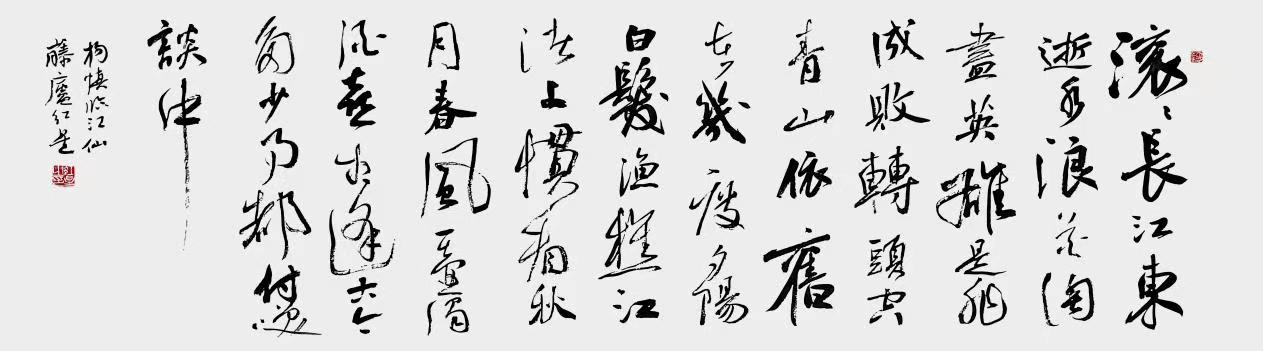 滾々長江東
逝水浪花淘
盡英雄是非
成敗轉頭空
青山依舊
在幾度夕陽
白髮漁樵江
渚上慣看秋
月春風一壺濁
酒喜相逢古今
多少事都付笑
談中
楊慎臨江仙
藤廬